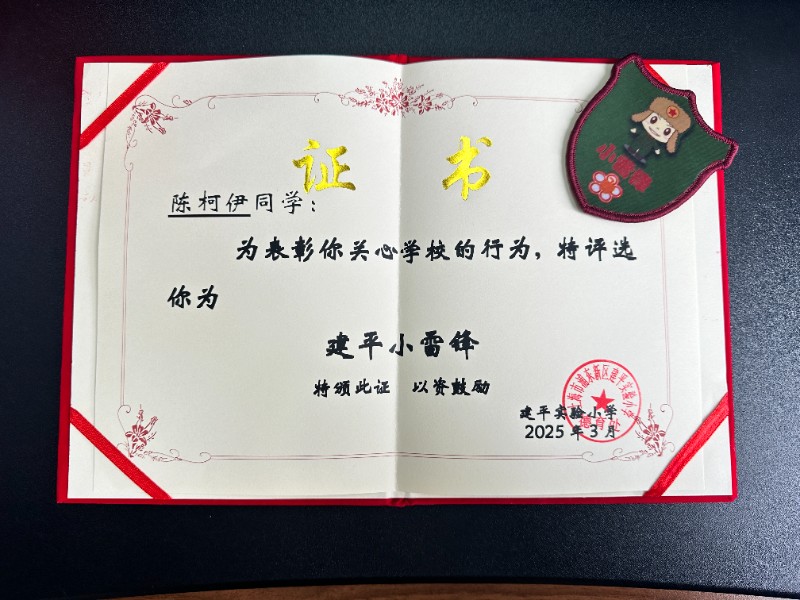 证书
陈柯伊同学：
为表彰你关心学校的行为，特评选
你为
建平小雷锋
特颁此证 以资鼓励
建平实验小学
2025年3月
上海市浦东新区建平实验小学
德育处
小雷锋